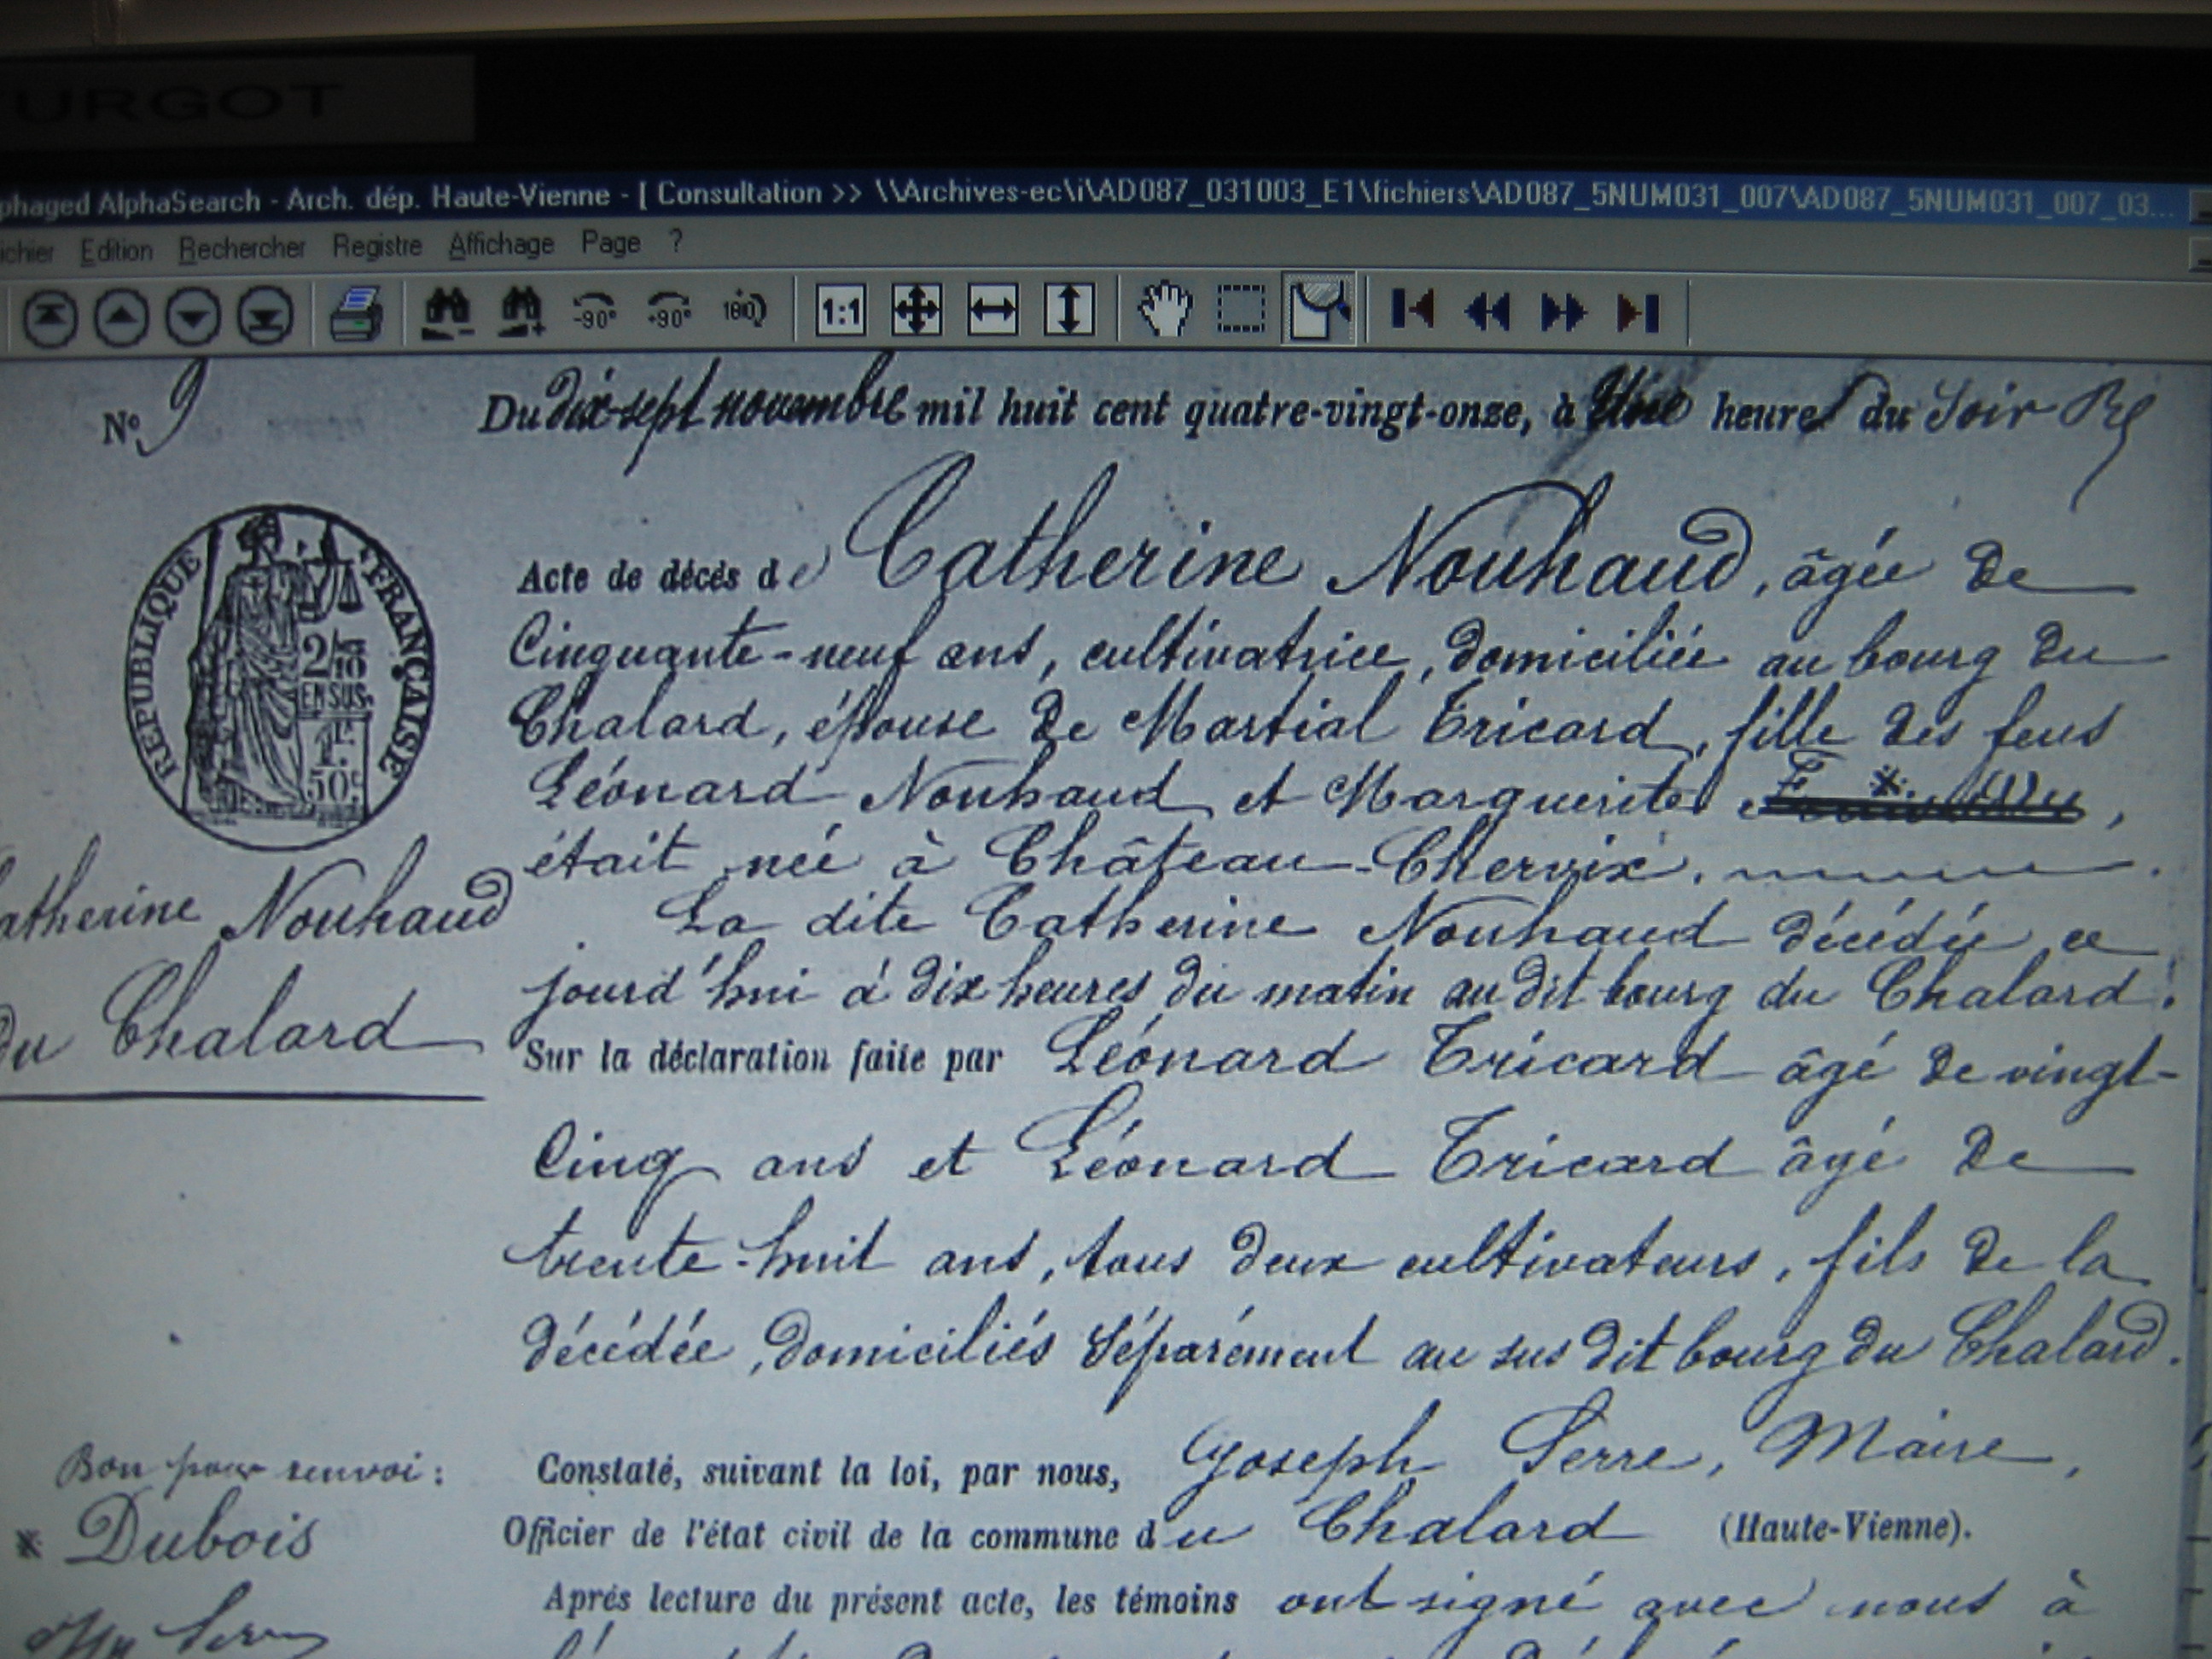 URGOT
phaged AlphaSearch - Arch. dép. Haute-Vienne - [ Consultation >> \\Archives-ec\i\AD087_031003_E1\fichiers\AD087_5NUM031_007\AD087_5NUM031_007_03...
ichier Edition Rechercher Registre Affichage Page ?
-90° +90° 180 1:1
N° 9
Du dix-sept novembre mil huit cent quatre-vingt-onze, à Une heure du Soir
REPUBLIQUE FRANÇAISE
2/10
EN SUS.
1F.
50c
Acte de décès de Catherine Nouhaud, âgée de
Cinquante-neuf ans, cultivatrice, domiciliée au bourg du
Chalard, épouse de Martial Tricard, fille des feus
Léonard Nouhaud et Marguerite ,
était née à Château-Chervix.
La dite Catherine Nouhaud décédée ce
jourd'hui à dix heures du matin au dit bourg du Chalard.
atherine Nouhaud
du Chalard
Sur la déclaration faite par Léonard Tricard âgé de vingt-
Cinq ans et Léonard Tricard âgé de
trente-huit ans, tous deux cultivateurs, fils de la
décédée, domiciliés séparément au sus dit bourg du Chalard.
Bon pour renvoi :
* Dubois
Serre
Constaté, suivant la loi, par nous, Joseph Serre, Maire,
Officier de l'état civil de la commune du Chalard (Haute-Vienne).
Après lecture du présent acte, les témoins ont signé avec nous à